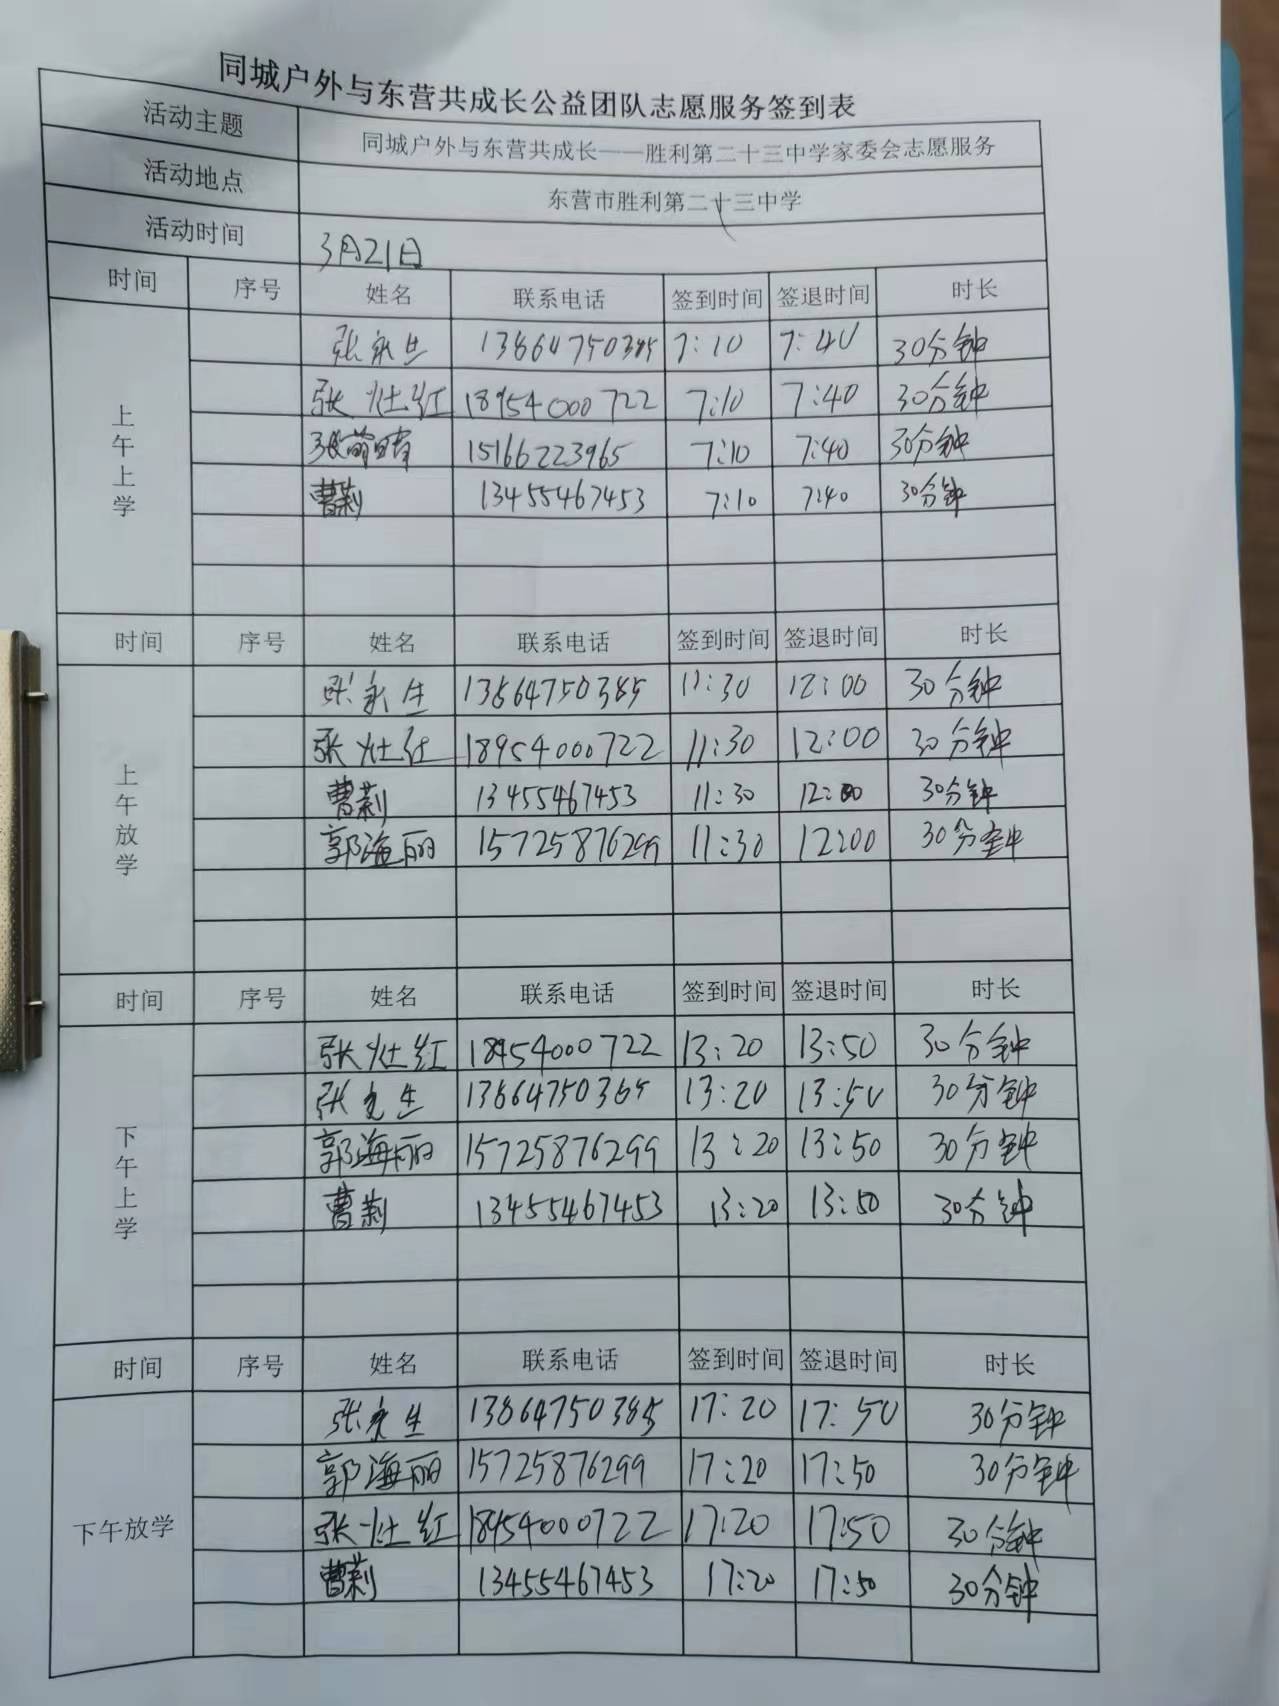 同城户外与东营共成长公益团队志愿服务签到表
活动主题 同城户外与东营共成长——胜利第二十三中学家委会志愿服务
活动地点 东营市胜利第二十三中学
活动时间 3月21日
时间 序号 姓名 联系电话 签到时间 签退时间 时长
上午上学
张永生 13864750385 7:10 7:40 30分钟
张灶红 18954000722 7:10 7:40 30分钟
张前晴 15166223965 7:10 7:40 30分钟
曹莉 13455467453 7:10 7:40 30分钟
时间 序号 姓名 联系电话 签到时间 签退时间 时长
上午放学
张永生 13864750385 11:30 12:00 30分钟
张灶红 18954000722 11:30 12:00 30分钟
曹莉 13455467453 11:30 12:00 30分钟
郭海丽 15725876299 11:30 12:00 30分钟
时间 序号 姓名 联系电话 签到时间 签退时间 时长
下午上学
张灶红 18954000722 13:20 13:50 30分钟
张永生 13864750385 13:20 13:50 30分钟
郭海丽 15725876299 13:20 13:50 30分钟
曹莉 13455467453 13:20 13:50 30分钟
时间 序号 姓名 联系电话 签到时间 签退时间 时长
下午放学
张永生 13864750385 17:20 17:50 30分钟
郭海丽 15725876299 17:20 17:50 30分钟
张灶红 18954000722 17:20 17:50 30分钟
曹莉 13455467453 17:20 17:50 30分钟